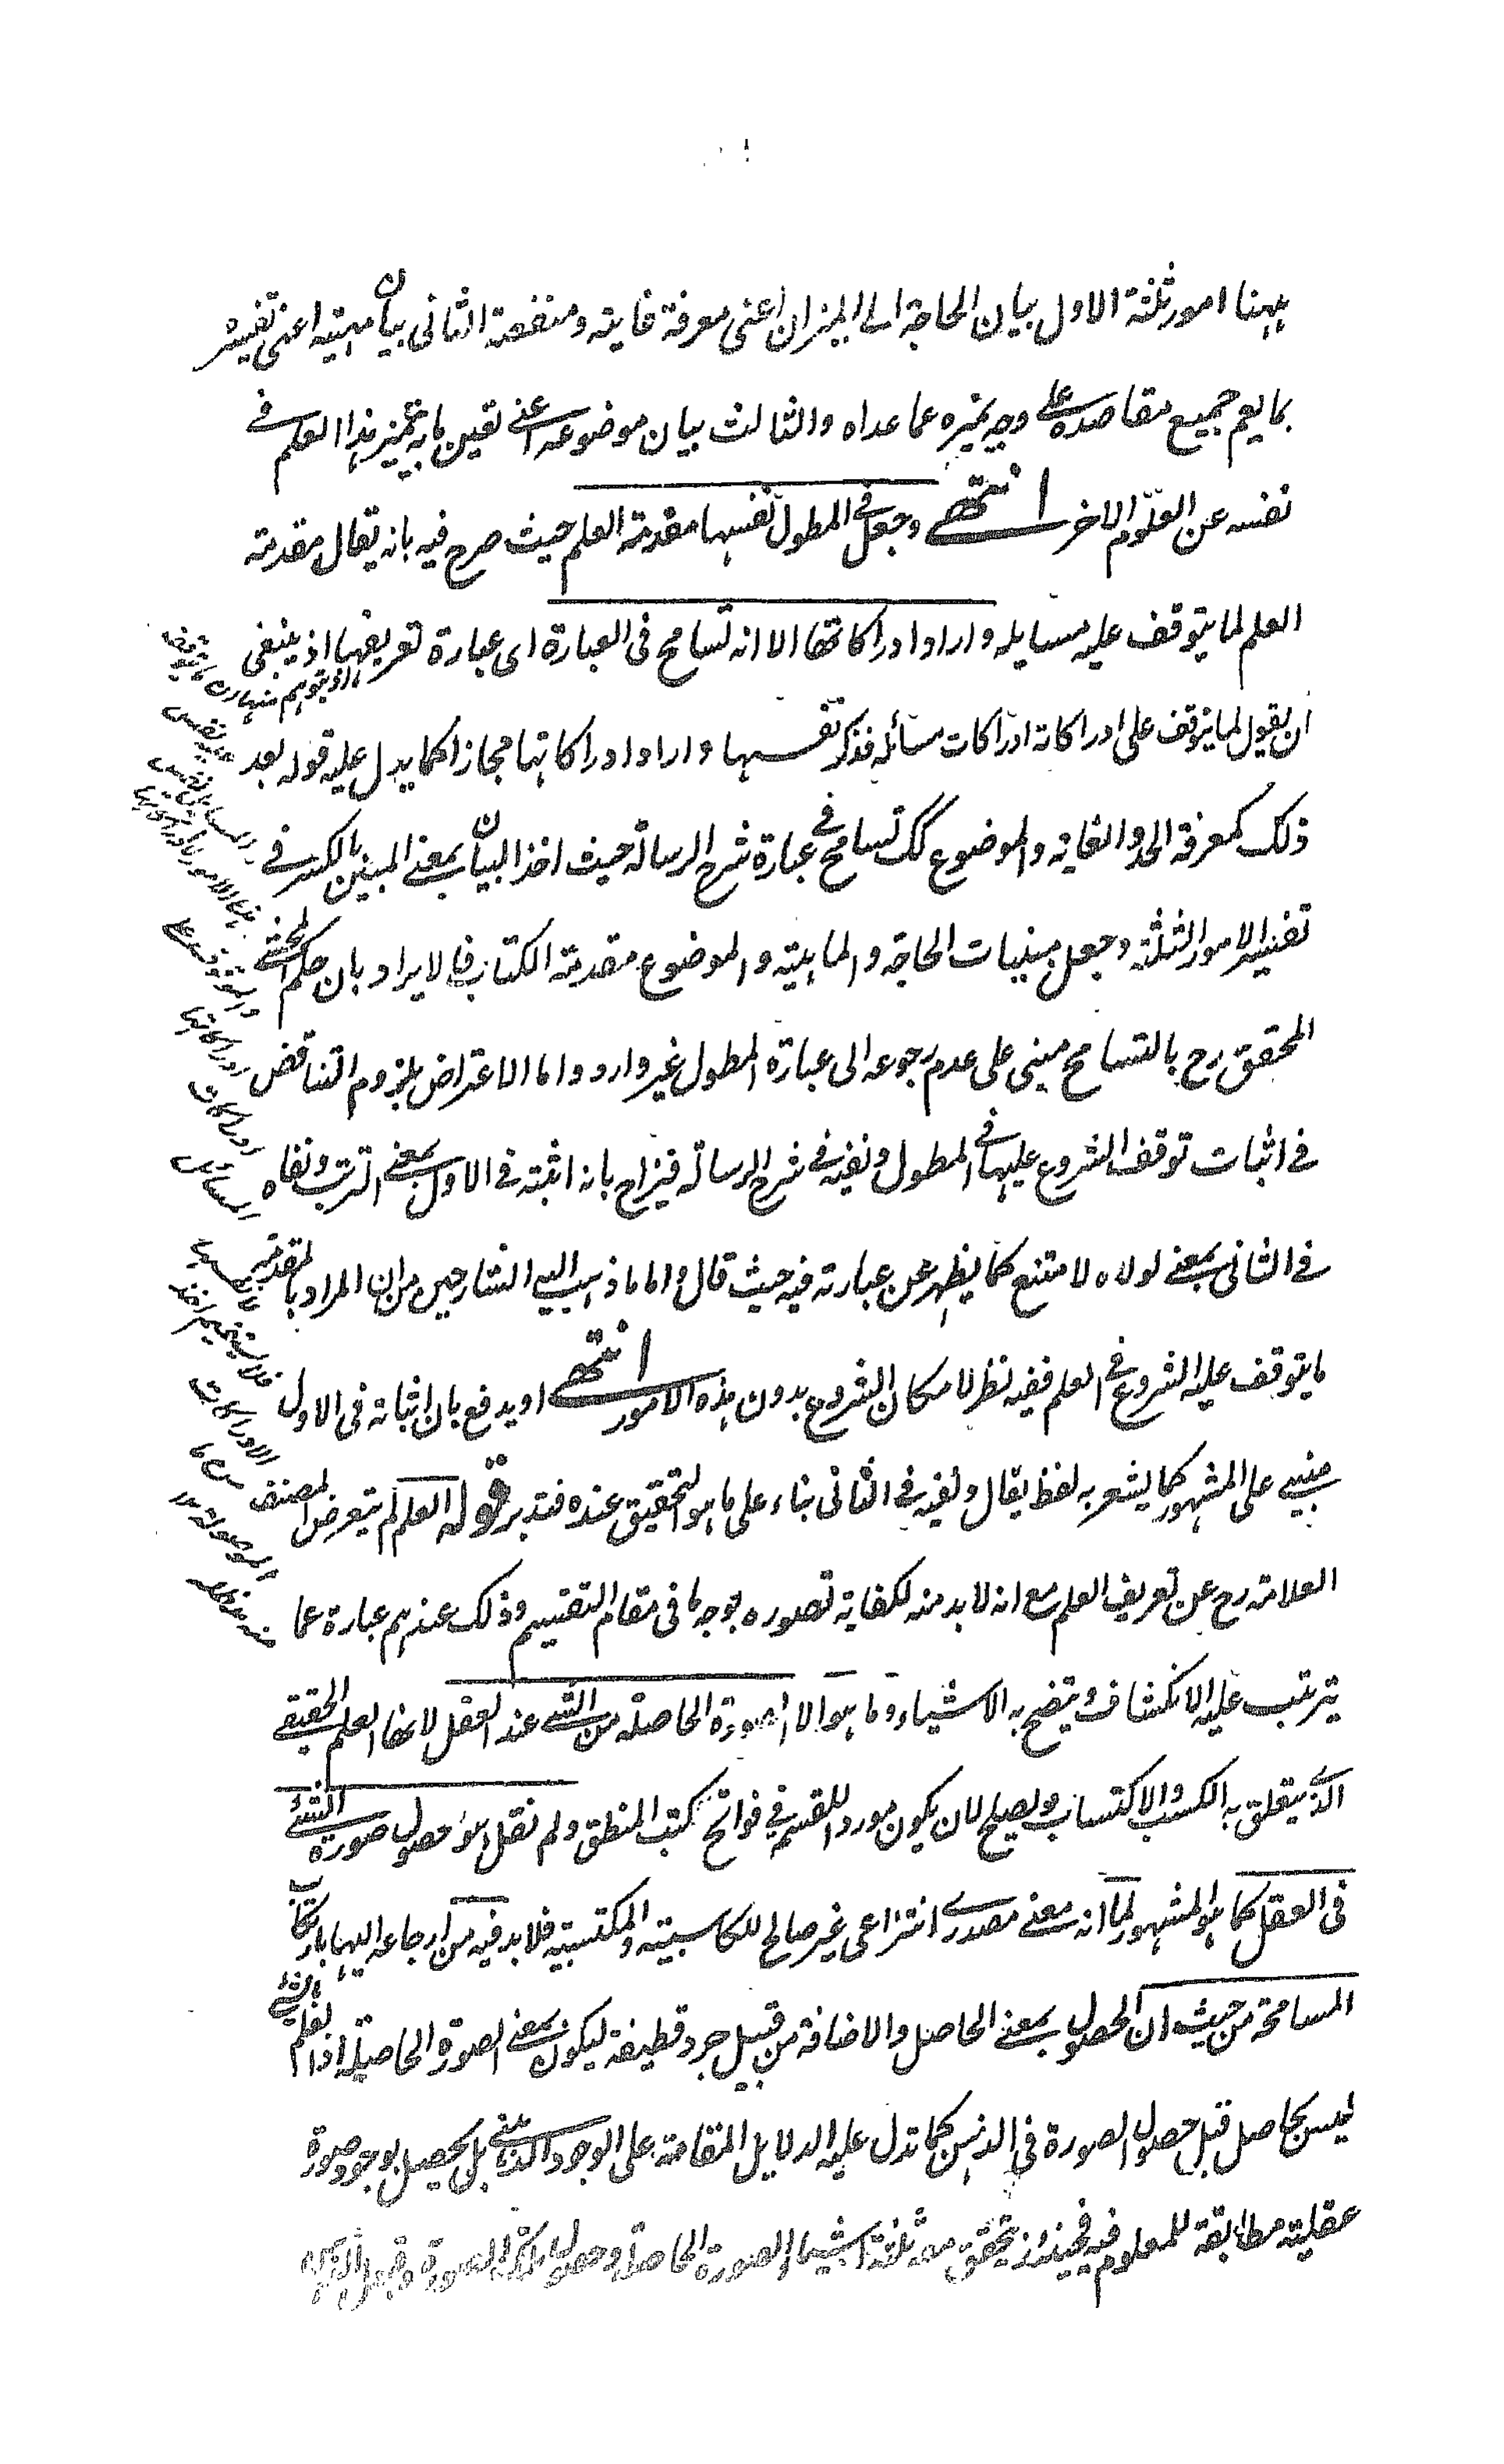 ههنا امور ثلثة الاول بيان الحاجة الى الميزان اعنى معرفة غايته ومنفعته الثانى بيان مهيته اعنى تفسيره
بما يعم جميع مقاصده على وجه يميزه عما عداه والثالث بيان موضوعه اعنى تعين ما به يتميز هذا العلم فى
نفسه عن العلوم الاخر انتهى وجعل فى المطول نفسها مقدمة العلم حيث صرح فيه بانه يقال مقدمة
العلم لما يتوقف عليه مسايله واراد ادراكاتها الا انه تسامح فى العبارة اى عبارة تعريفها اذ ينبغى
ان يقول لما يتوقف على ادراكاته ادراكات مسائله فذكر نفسها واراد ادراكاتها مجازا كما يدل عليه قوله بعد
ذلك كمعرفة الحد والغاية والموضوع كك تسامح فى عبارة شرح الرسالة حيث اخذ البيان بمعنى المبين بالكسر فى
تفسير الامور الثلثة وجعل مبينات الحاجة والماهية والموضوع مقدمة الكتاب فالايراد بان حكم المحشى
المحقق رح بالتسامح مبنى على عدم رجوعه الى عبارة المطول غير وارد واما الاعتراض بلزوم التناقض
فى اثبات توقف الشروع عليها فى المطول ونفيه فى شرح الرسالة فيزاح بانه اثبته فى الاول بمعنى الترتب ونفاه
فى الثانى بمعنى لولاه لامتنع كما يظهر عن عبارته فيه حيث قال واما ما ذهب اليه الشارحين من ان المراد بالمقدمة
ما يتوقف عليه الشروع فى العلم ففيه نظر لامكان الشروع بدون هذه الامور انتهى او يدفع بان اثباته فى الاول
مبنى على المشهور كما يشعر به لفظ يقال ونفيه فى الثانى بناء على ما هو التحقيق عنده فتدبر قوله العلم لم يتعرض المصنف
العلامة رح عن تعريف العلم مع انه لا بد منه لكفاية تصوره بوجه ما فى مقام التقسيم وذلك عندهم عبارة عما
يترتب عليه الانكشاف ويتضح به الاشياء وما هو الا الصورة الحاصلة من الشئ عند العقل لانها العلم الحقيقى
الذى يتعلق به الكسب والاكتساب ويصلح لان يكون موردا للقسمة فى فواتح كتب المنطق ولم نقل هو حصول صورة الشئ
فى العقل كما هو المشهور لما انه معنى مصدرى انتزاعى غير صالح للكاسبية والمكتسبية فلا بد فيه من ارجاعه اليها بارتكاب
المسامحة من حيث ان الحصول بمعنى الحاصل والاضافة من قبيل جرد قطيفة ليكون بمعنى الصورة الحاصلة اذ العلم بالشئ
ليس بحاصل قبل حصول الصورة فى الذهن كما تدل عليه الدلايل المقامة على الوجود الذهنى بل يحصل بوجود صورة
عقلية مطابقة للمعلوم فيه فحينئذ يتحقق معه ثلثة اشياء الصورة الحاصلة وحصول تلك الصورة وقبول الذهن